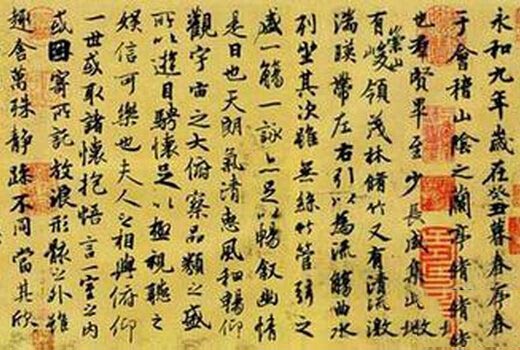 永和九年歲在癸丑暮春春
于會稽山陰之蘭亭脩脩
也羣賢畢至少長咸集此地
有崇山峻領茂林脩竹又有清流激
湍暎帶左右引以為流觴曲水
列坐其次雖無絲竹管弦之
盛一觴一詠亦足以暢敘幽情
是日也天朗氣清惠風和暢仰
觀宇宙之大俯察品類之盛
所以遊目騁懷足以極視聽之
娛信可樂也夫人之相與俯仰
一世或取諸懷抱悟言一室之內
或因寄所託放浪形骸之外雖
趣舍萬殊靜躁不同當其欣